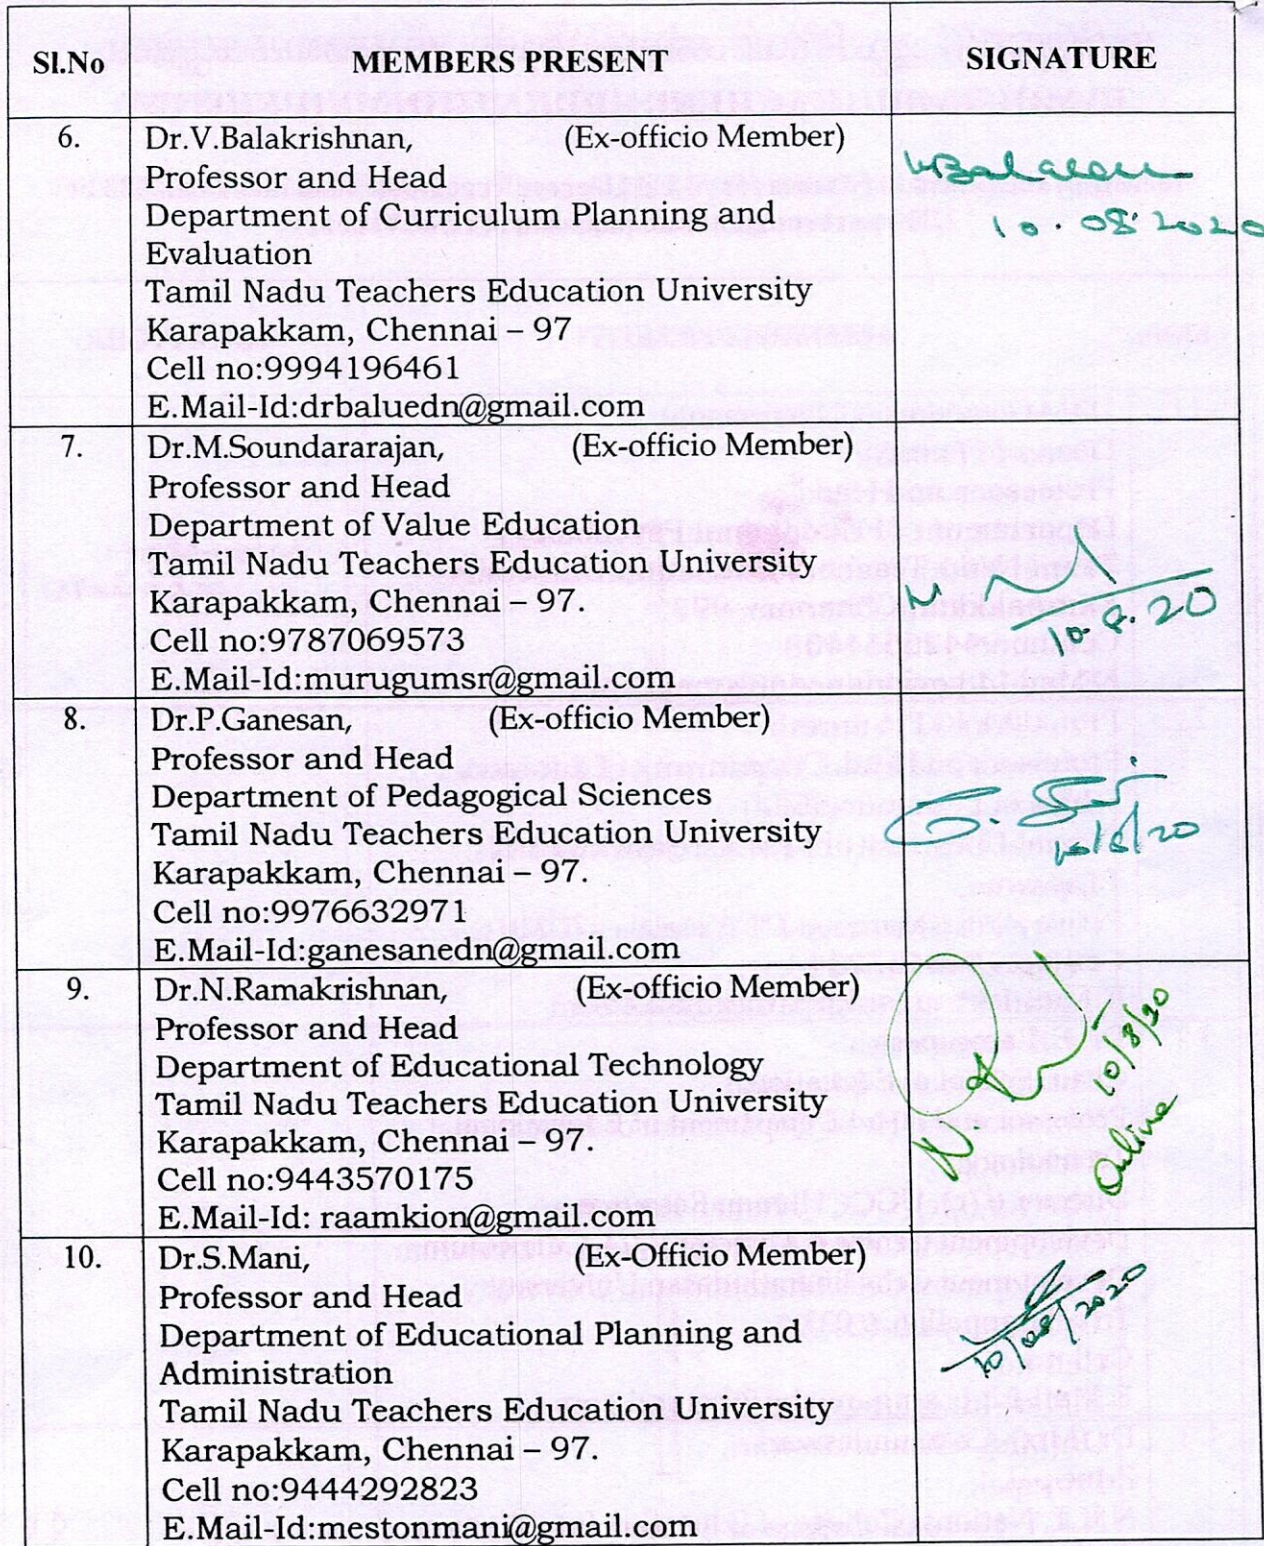 Sl.No MEMBERS PRESENT SIGNATURE
6. Dr.V.Balakrishnan, (Ex-officio Member)
Professor and Head
Department of Curriculum Planning and
10.08.2020
Evaluation
Tamil Nadu Teachers Education University
Karapakkam, Chennai – 97
Cell no:9994196461
E.Mail-Id:drbaluedn@gmail.com
7. Dr.M.Soundararajan, (Ex-officio Member)
Professor and Head
Department of Value Education
Tamil Nadu Teachers Education University
Karapakkam, Chennai – 97.
10.8.20
Cell no:9787069573
E.Mail-Id:murugumsr@gmail.com
8. Dr.P.Ganesan, (Ex-officio Member)
Professor and Head
Department of Pedagogical Sciences
Tamil Nadu Teachers Education University
10/8/20
Karapakkam, Chennai – 97.
Cell no:9976632971
E.Mail-Id:ganesanedn@gmail.com
9. Dr.N.Ramakrishnan, (Ex-officio Member)
Professor and Head
10/8/20
Department of Educational Technology
Tamil Nadu Teachers Education University
Online
Karapakkam, Chennai – 97.
Cell no:9443570175
E.Mail-Id: raamkion@gmail.com
10. Dr.S.Mani, (Ex-Officio Member)
Professor and Head
10/08/2020
Department of Educational Planning and
Administration
Tamil Nadu Teachers Education University
Karapakkam, Chennai – 97.
Cell no:9444292823
E.Mail-Id:mestonmani@gmail.com